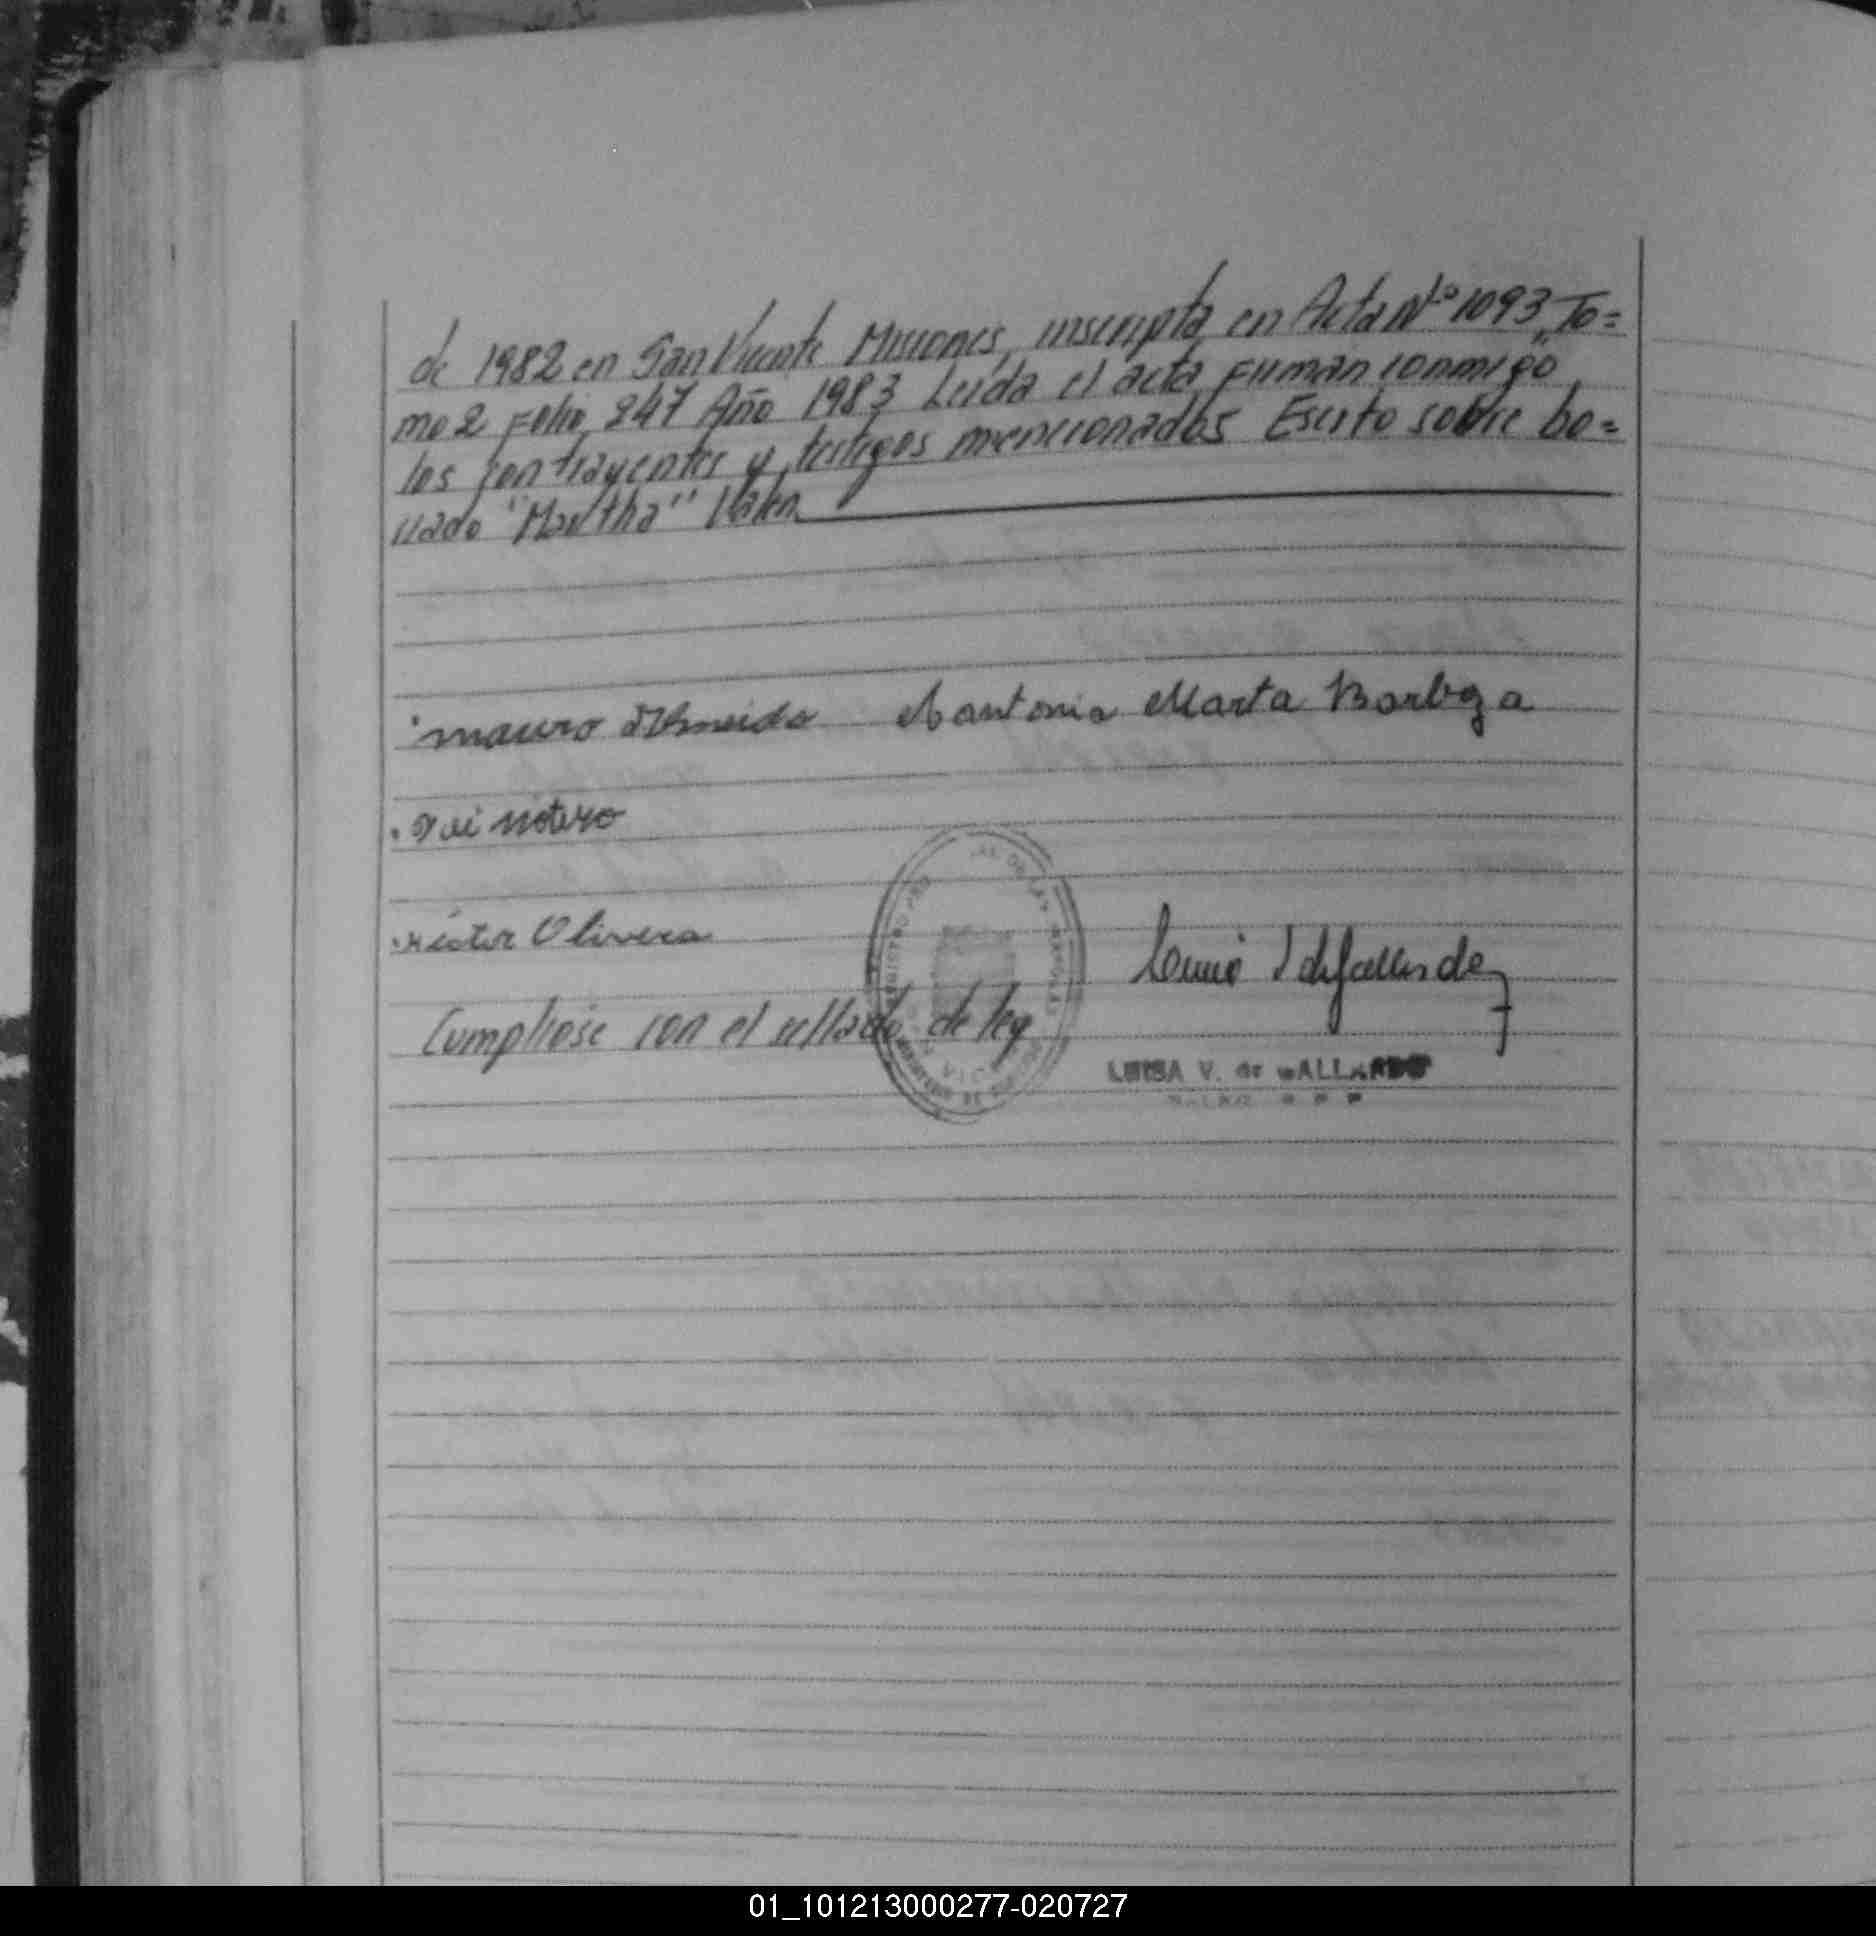 de 1982 en San Vicente Misiones, inscripta en Acta Nº 1093, To=
mo 2 Folio 247 Año 1983 Leída el acta, Firman conmigo
los contrayentes y testigos mencionados Escrito sobre bo=
rrado "Martha" Vale.
mauro Almeida Antonia Marta Barboza
Nestor Olivera
Cumpliose con el sellado de ley
LUISA V. de GALLARDO
01_101213000277-020727